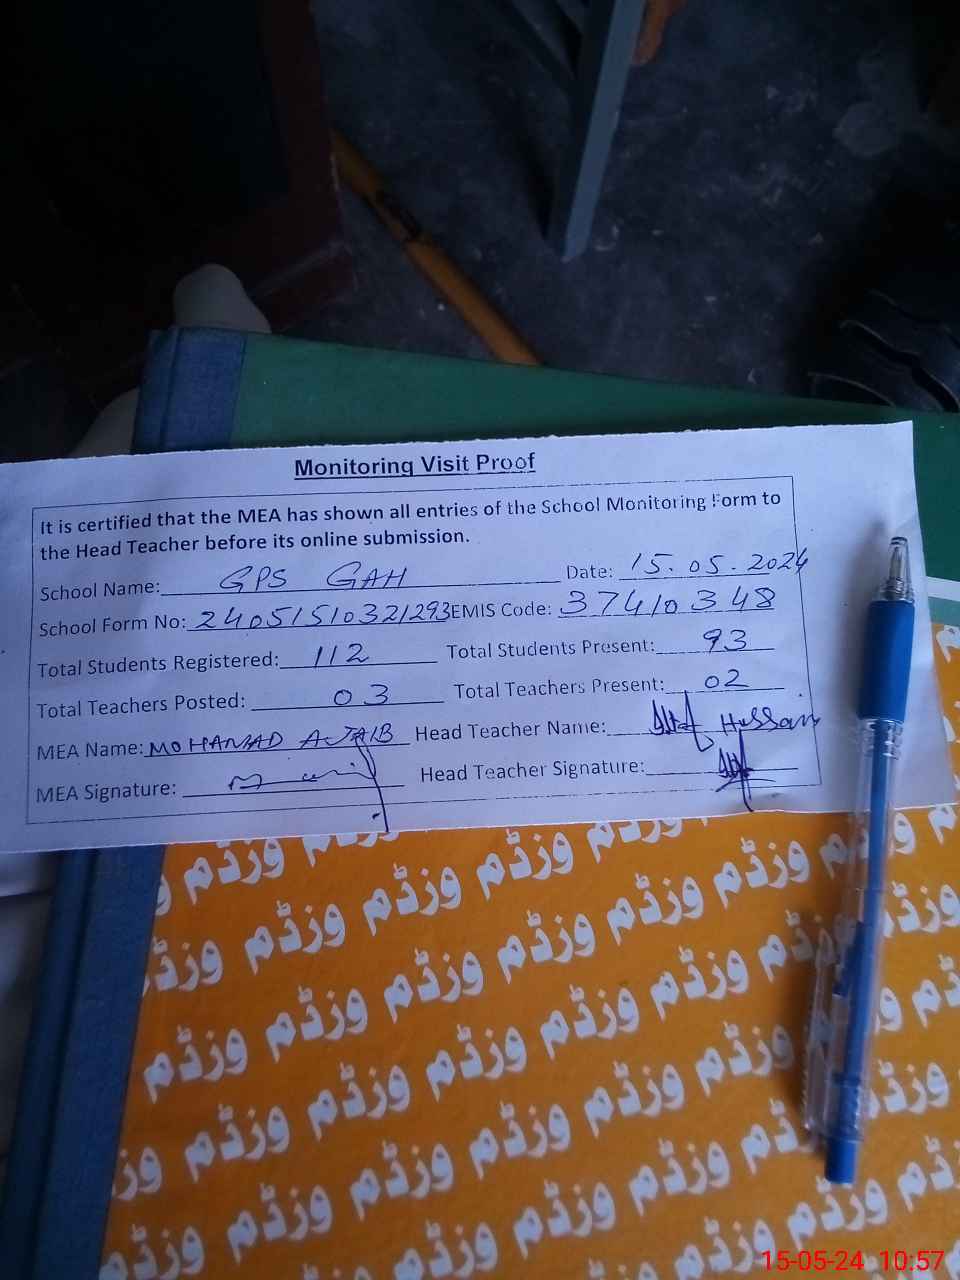 Monitoring Visit Proof
It is certified that the MEA has shown all entries of the School Monitoring Form to
the Head Teacher before its online submission.
School Name: GPS GAH Date: 15.05.2024
School Form No: 24051510321293 EMIS Code: 37410348
Total Students Registered: 112 Total Students Present: 93
Total Teachers Posted: 03 Total Teachers Present: 02
MEA Name: MOHAMAD AJAIB Head Teacher Name: Altaf Hussain
MEA Signature: Head Teacher Signature:
وزڈم وزڈم وزڈم وزڈم وزڈم
وزڈم وزڈم وزڈم وزڈم وزڈم وزڈم
وزڈم وزڈم وزڈم وزڈم وزڈم وزڈم
وزڈم وزڈم وزڈم وزڈم وزڈم وزڈم
وزڈم وزڈم وزڈم وزڈم وزڈم
15-05-24 10:57